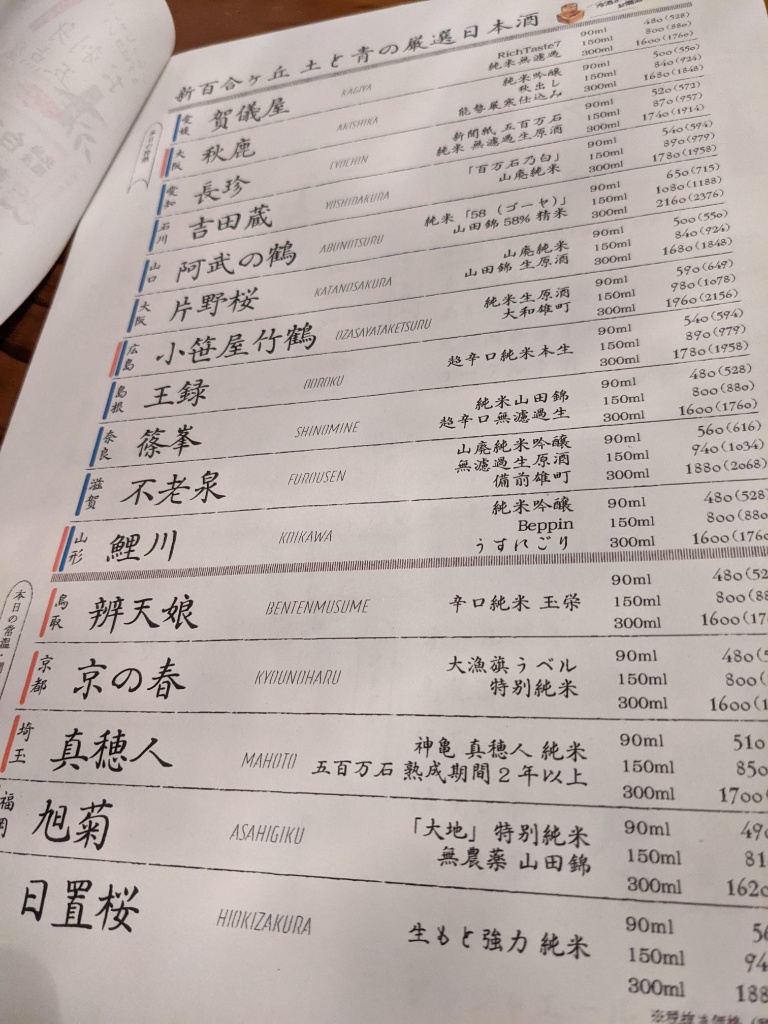 新百合ヶ丘 土と青の厳選日本酒
愛媛 賀儀屋 KAGIYA RichTaste7 純米無濾過 90ml 480(528) 150ml 800(880) 300ml 1600(1760)
大阪 秋鹿 AKISHIKA 純米吟醸 秋出し 能勢厳寒仕込み 90ml 500(550) 150ml 840(924) 300ml 1680(1848)
愛知 長珍 CYOCHIN 新聞紙 五百万石 純米 無濾過生原酒 90ml 520(572) 150ml 870(957) 300ml 1740(1914)
石川 吉田蔵 YOSHIDAKURA 「百万石乃白」 山廃純米 90ml 540(594) 150ml 890(979) 300ml 1780(1958)
山口 阿武の鶴 ABUNOTSURU 純米「58 (ゴーヤ)」 山田錦 58% 精米 90ml 650(715) 150ml 1080(1188) 300ml 2160(2376)
大阪 片野桜 KATANOSAKURA 山廃純米 山田錦 生原酒 90ml 500(550) 150ml 840(924) 300ml 1680(1848)
広島 小笹屋竹鶴 OZASAYATAKETSURU 純米生原酒 大和雄町 90ml 590(649) 150ml 980(1078) 300ml 1960(2156)
島根 王録 OOROKU 超辛口純米本生 90ml 540(594) 150ml 890(979) 300ml 1780(1958)
奈良 篠峯 SHINOMINE 純米山田錦 超辛口無濾過生 90ml 480(528) 150ml 800(880) 300ml 1600(1760)
滋賀 不老泉 FUROUSEN 山廃純米吟醸 無濾過生原酒 備前雄町 90ml 560(616) 150ml 940(1034) 300ml 1880(2068)
山形 鯉川 KOIKAWA 純米吟醸 Beppin うすにごり 90ml 480(528) 150ml 800(880 300ml 1600(176
本日の常温
鳥取 辨天娘 BENTENMUSUME 辛口純米 玉栄 90ml 480(52 150ml 800(88 300ml 1600(17
京都 京の春 KYOUNOHARU 大漁旗ラベル 特別純米 90ml 480( 150ml 800( 300ml 1600(1
埼玉 真穂人 MAHOTO 神亀 真穂人 純米 五百万石 熟成期間2年以上 90ml 510 150ml 850 300ml 1700(
福岡 旭菊 ASAHIGIKU 「大地」特別純米 無農薬 山田錦 90ml 150ml 81 300ml 162
日置桜 HIOKIZAKURA 生もと強力 純米 90ml 150ml 94 300ml 188